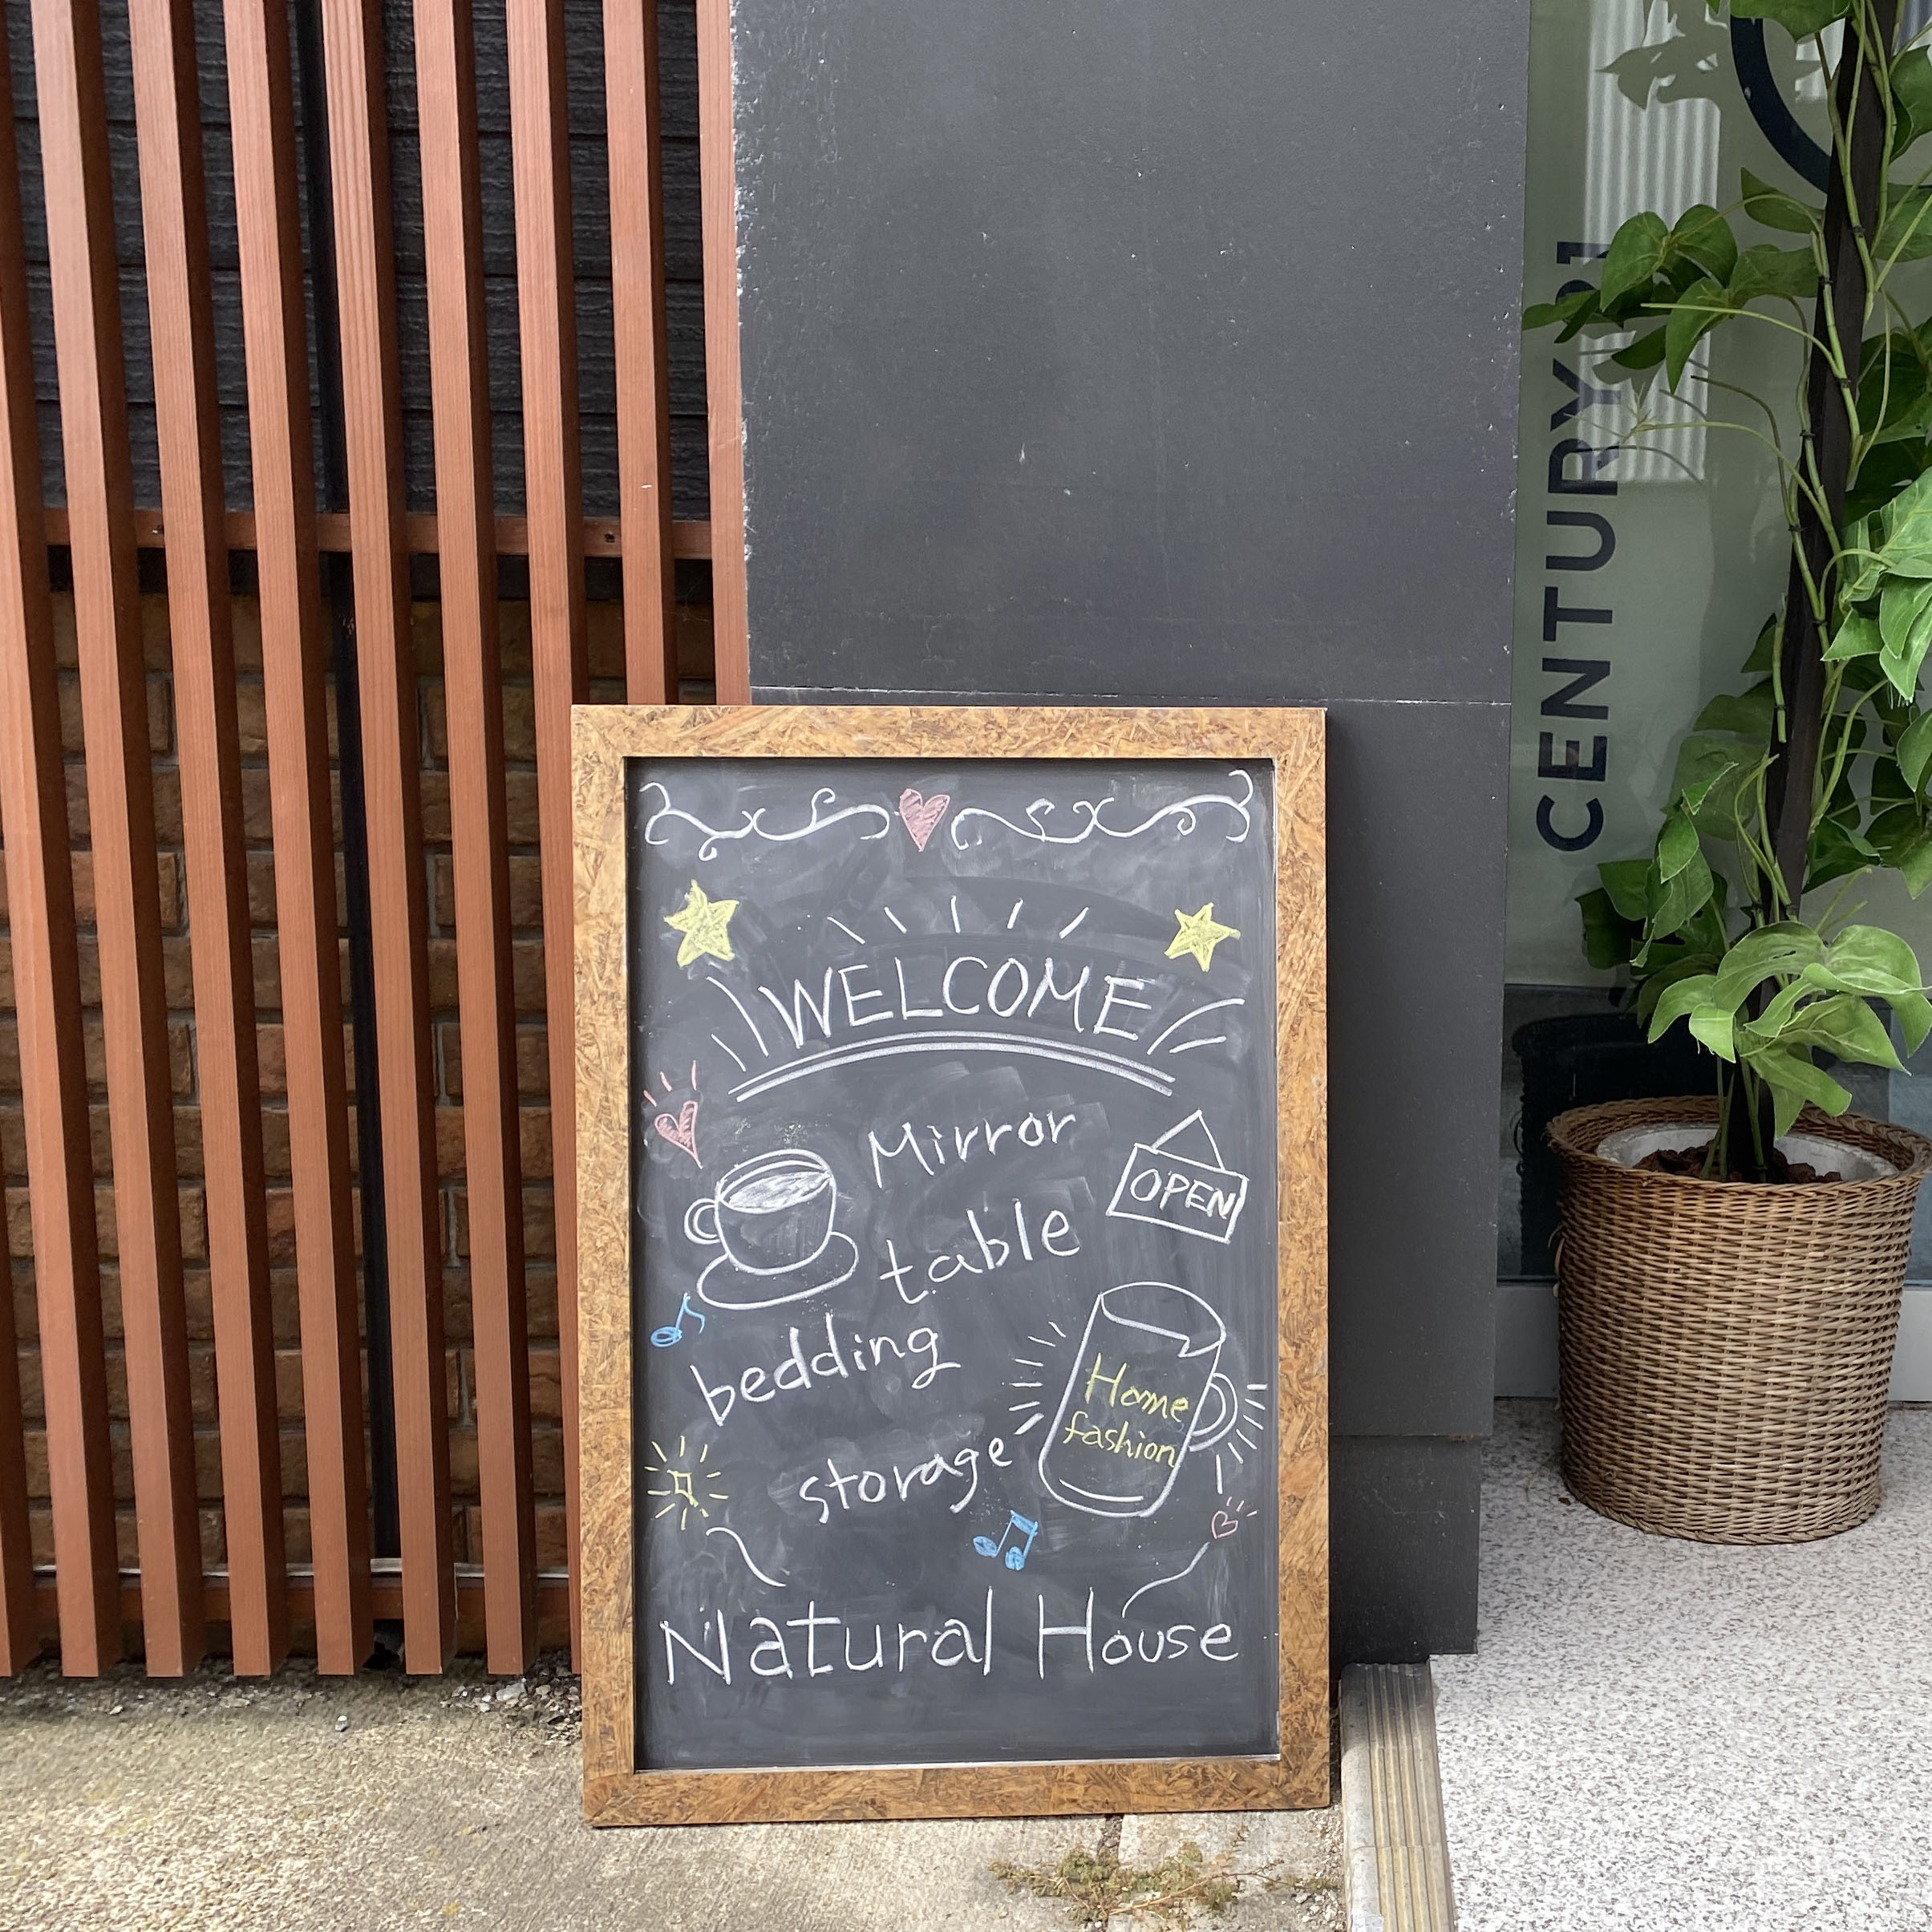 WELCOME
Mirror
OPEN
table
bedding
Home
fashion
storage
Natural House
CENTURY 21